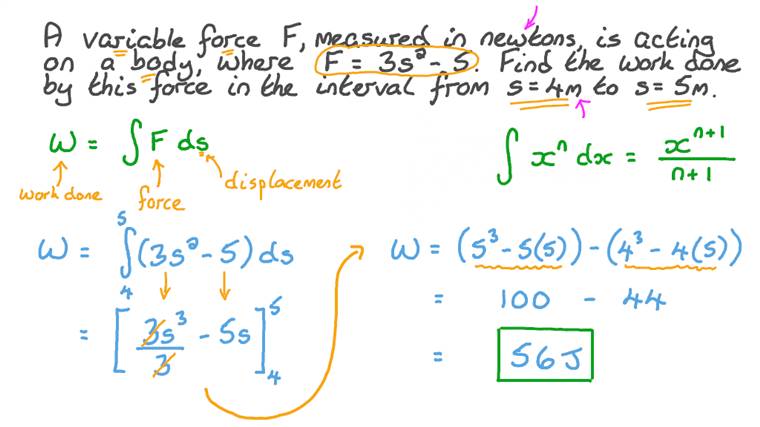 A variable force F, measured in newtons, is acting
on a body, where F = 3s² - 5. Find the work done
by this force in the interval from s = 4m to s = 5m.
W = ∫ F ds
work done
force
displacement
∫ xⁿ dx = xⁿ⁺¹ / n+1
W = ∫₄⁵ (3s² - 5) ds
= [3s³/3 - 5s]₄⁵
W = (5³ - 5(5)) - (4³ - 4(5))
= 100 - 44
= 56J